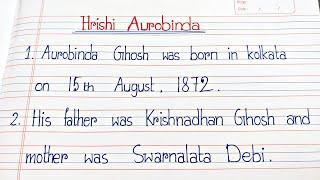 Hrishi Aurobinda
1. Aurobinda Ghosh was born in kolkata
on 15th August, 1872.
2. His father was Krishnadhan Ghosh and
mother was Swarnalata Debi.